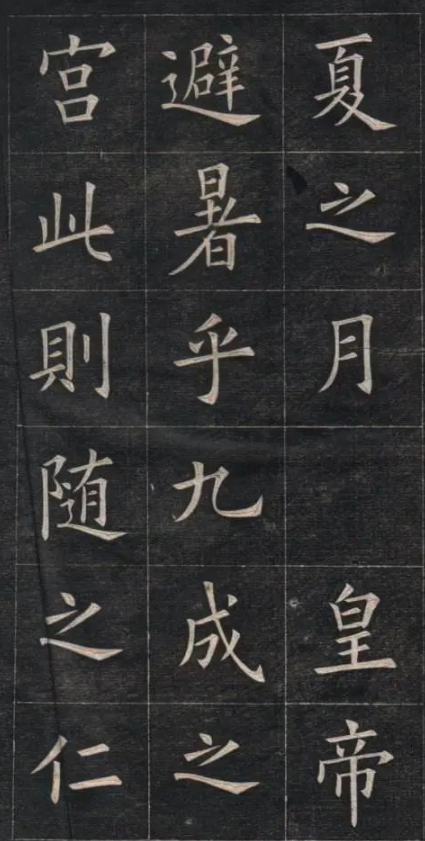 夏之月 皇帝
避暑乎九成之
宮此則随之仁